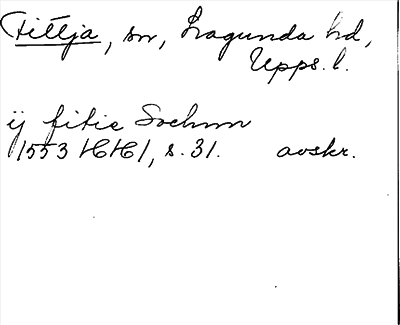 Fittja, sn, Lagunda hd,
Upps. l.
ij fitie Sochnn
1553 HH1, s. 31. avskr.